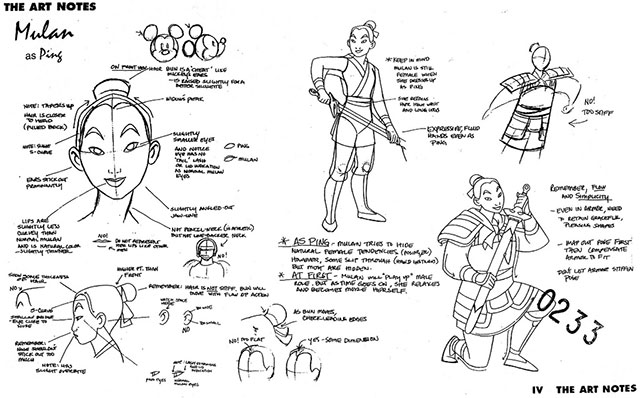 THE ART NOTES
Mulan
as Ping
ON FRONT VIEW HAIR BUN IS A "CHEAT" LIKE
MICKEY'S EARS
- IS RAISED SLIGHTLY FOR A
BETTER SILHOUETTE
WIDOW'S PEAK
NOTE: TAPERS UP
HAIR IS CLOSER
TO HEAD
(PULLED BACK)
NOTE:
S-CURVE
EARS STICK OUT
PROMINENTLY
SLIGHTLY
SMALLER EYES
AND NOTICE
EYE HAS NO
"TAIL" LASH
OR LID INDICATION
AS NORMAL MULAN
EYES
PING
MULAN
SLIGHTLY ANGLED-OUT
JAW-LINE
LIPS ARE
SLIGHTLY LESS
CURVEY THAN
NORMAL MULAN
AND IS NATURAL COLOR
- SLIGHTLY THINNER
NO!
DO NOT
LIPS LIKE OTHER
MEN
NOT PENCIL-NECK
BUT NOT LINE-BACKER NECK
NO!
* KEEP IN MIND
MULAN IS STILL
FEMALE WHEN
SHE DRESSES UP
AS PING
SHE
HIDE HER WAIST
AND LONG LEGS
EXPRESSIVE, FLUID
HANDS EVEN AS
PING
NO!
TOO STIFF
REMEMBER, FLOW
AND
SIMPLICITY
- EVEN IN ARMOR, NEED
TO RETAIN GRACEFUL,
FLOWING SHAPES
- MAP OUT POSE FIRST
THEN COMPENSATE
ARMOR TO FIT
DON'T LET ARMOR STIFFEN
POSE
* AS PING - MULAN TRIES TO HIDE
NATURAL FEMALE TENDENCIES
HOWEVER, SOME SLIP THROUGH
BUT MOST ARE HIDDEN.
* AT FIRST - MULAN WILL "PLAY UP" MALE
ROLE, BUT AS TIME GOES ON, SHE RELAXES
AND BECOMES MORE HERSELF.
SHOW SOME THICKNESS OF
HAIR
NO
S-CURVE
HIGHER PT. THAN
FRONT
REMEMBER: HAIR IS NOT STIFF, BUN WILL
MOVE WITH FLOW OF ACTION
REMEMBER:
STICK OUT TOO
MUCH
NOTE: HAS
SLIGHT OVERBITE
PING EYES
NORMAL
MULAN EYES
AS BUN MOVES,
CHECK LEADING EDGES
NO! TOO FLAT
YES - SOME DIMENSION
0233
IV THE ART NOTES